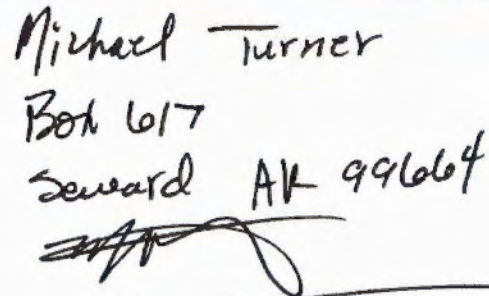 Michael Turner
Box 617
Seward AK 99664